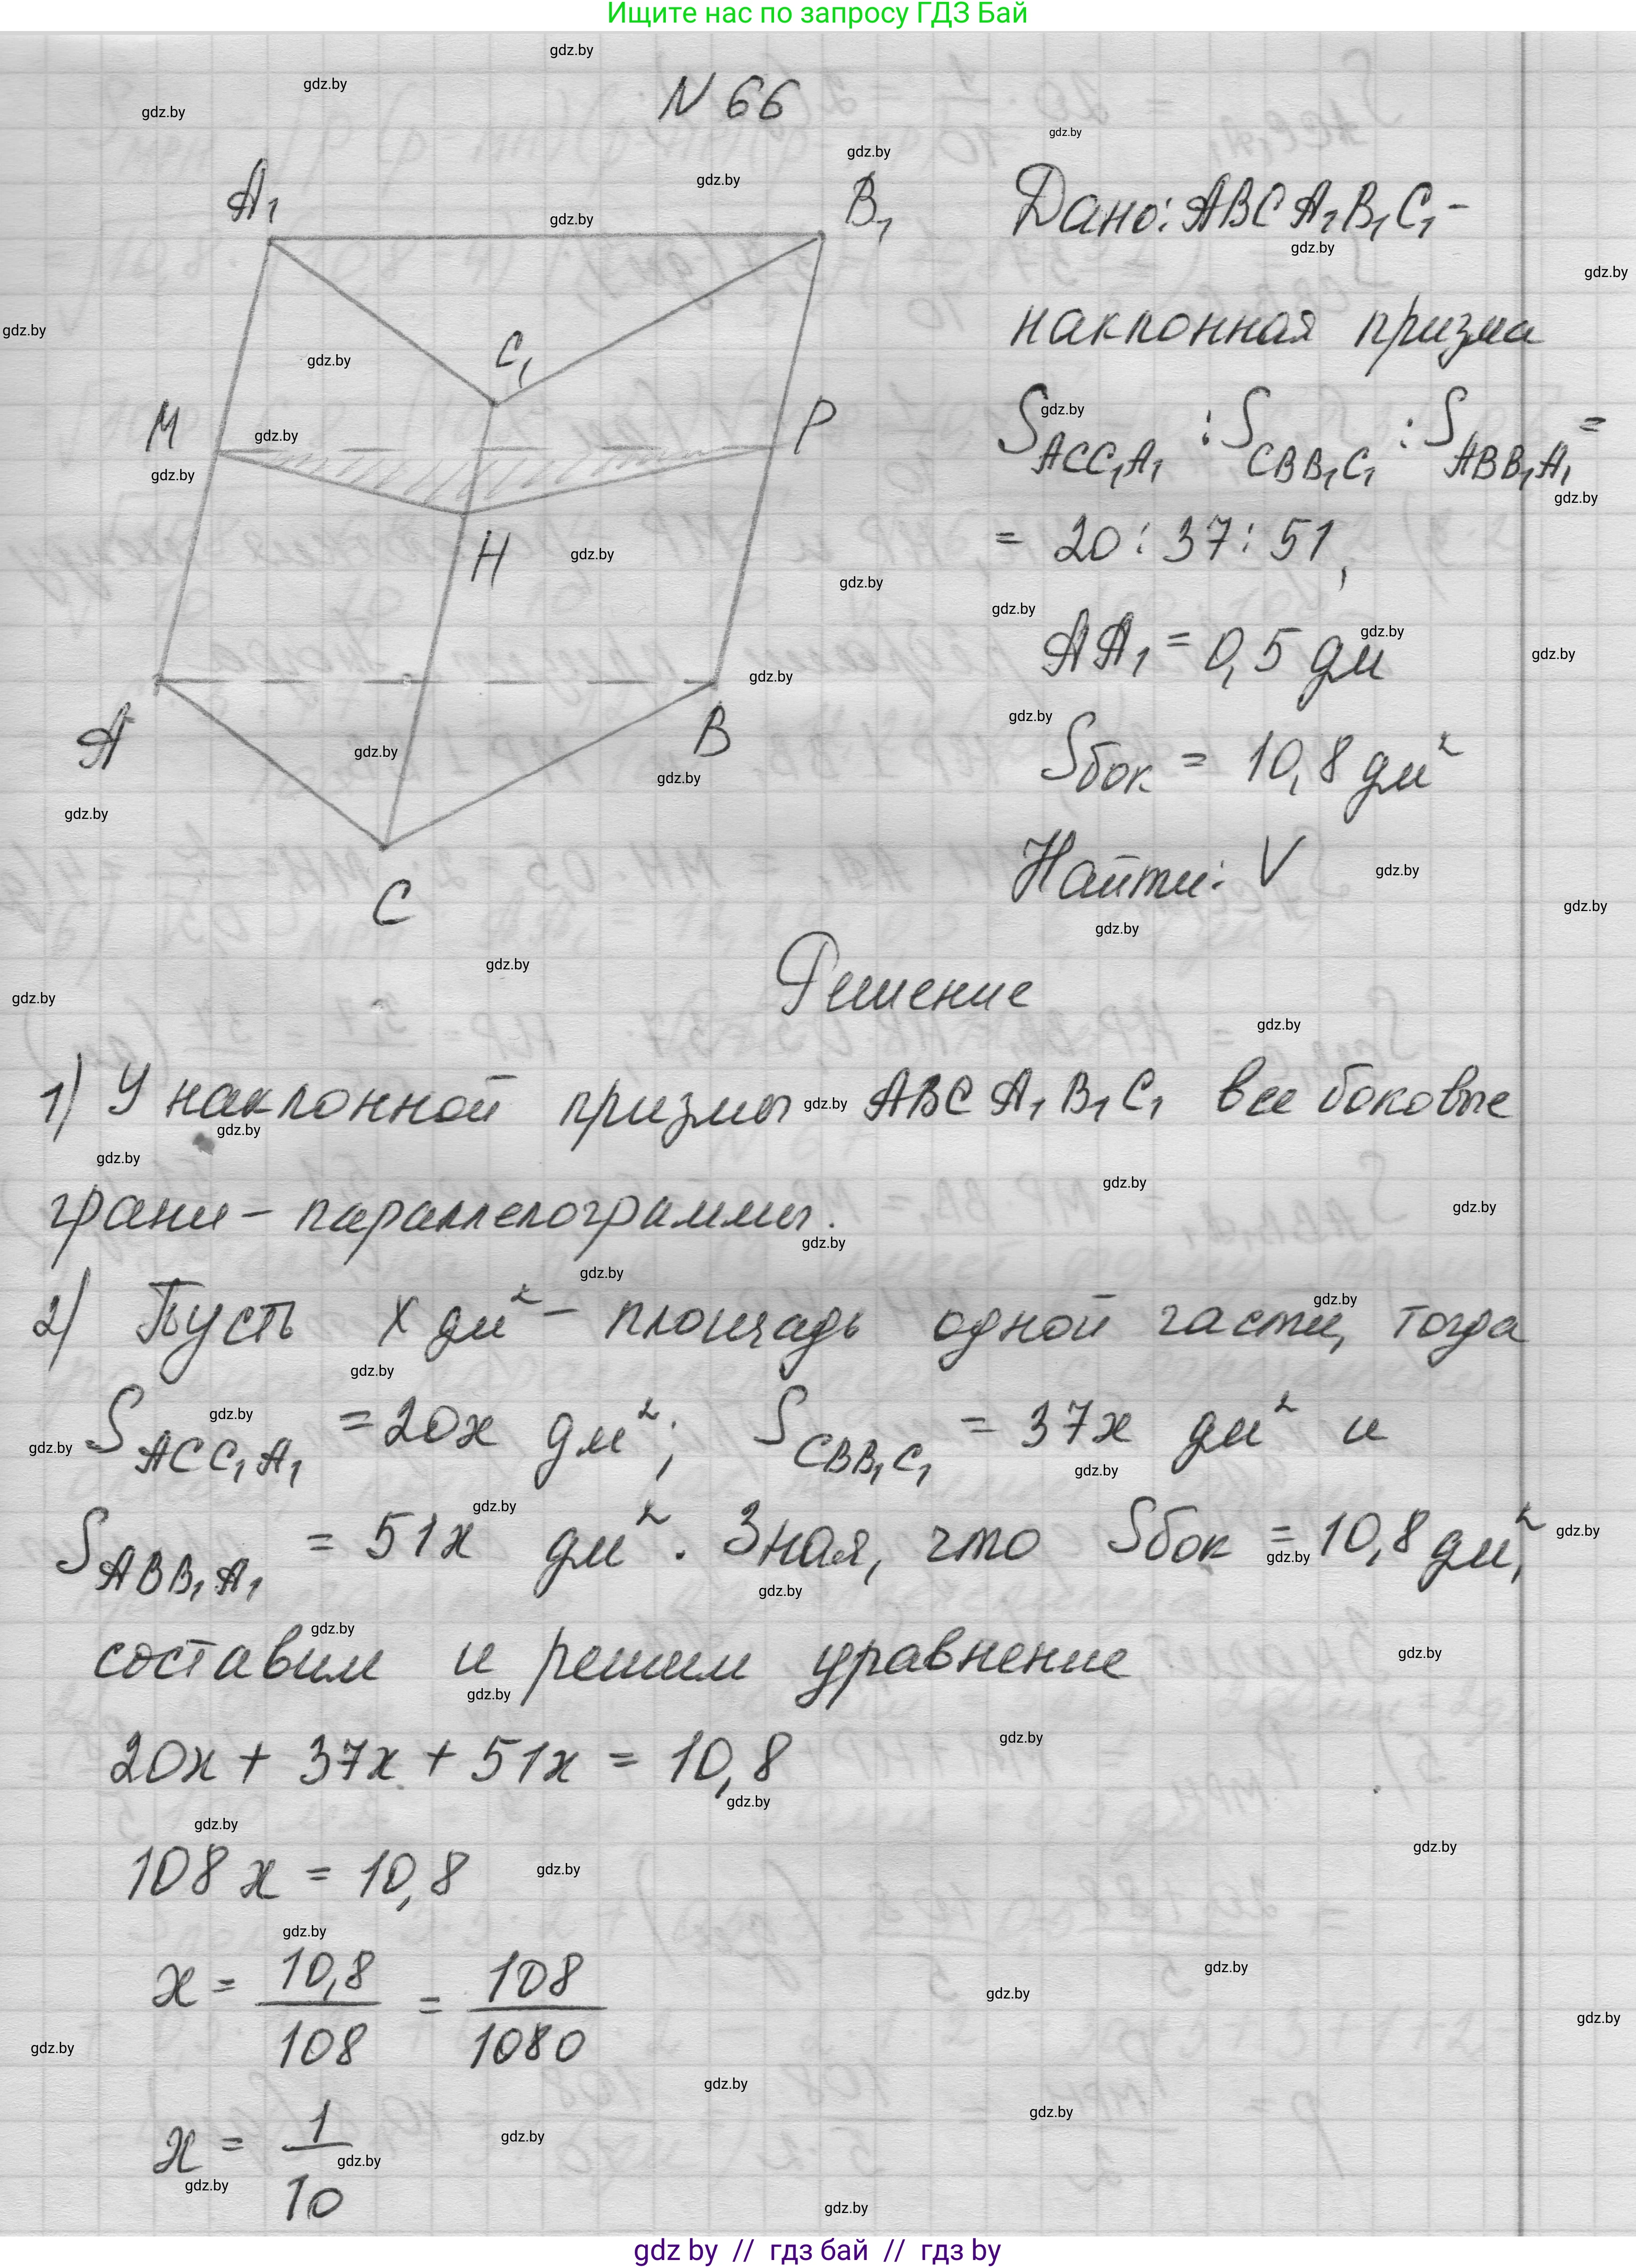 Ищите нас по запросу ГДЗ Бай
N 66
A₁ B₁ C₁ M P H A B C
Дано: ABCA₁B₁C₁ -
наклонная призма
S_ACC₁A₁ : S_CBB₁C₁ : S_ABB₁A₁ =
= 20 : 37 : 51,
AA₁ = 0,5 дм
Sбок = 10,8 дм²
Найти: V
Решение
1) У наклонной призмы ABCA₁B₁C₁ все боковые
грани - параллелограммы.
2) Пусть x дм² - площадь одной части, тогда
S_ACC₁A₁ = 20x дм²; S_CBB₁C₁ = 37x дм² и
S_ABB₁A₁ = 51x дм². Зная, что Sбок = 10,8 дм²,
составим и решим уравнение
20x + 37x + 51x = 10,8
108x = 10,8
x = 10,8/108 = 108/1080
x = 1/10
gdz by // гдз бай // гдз by